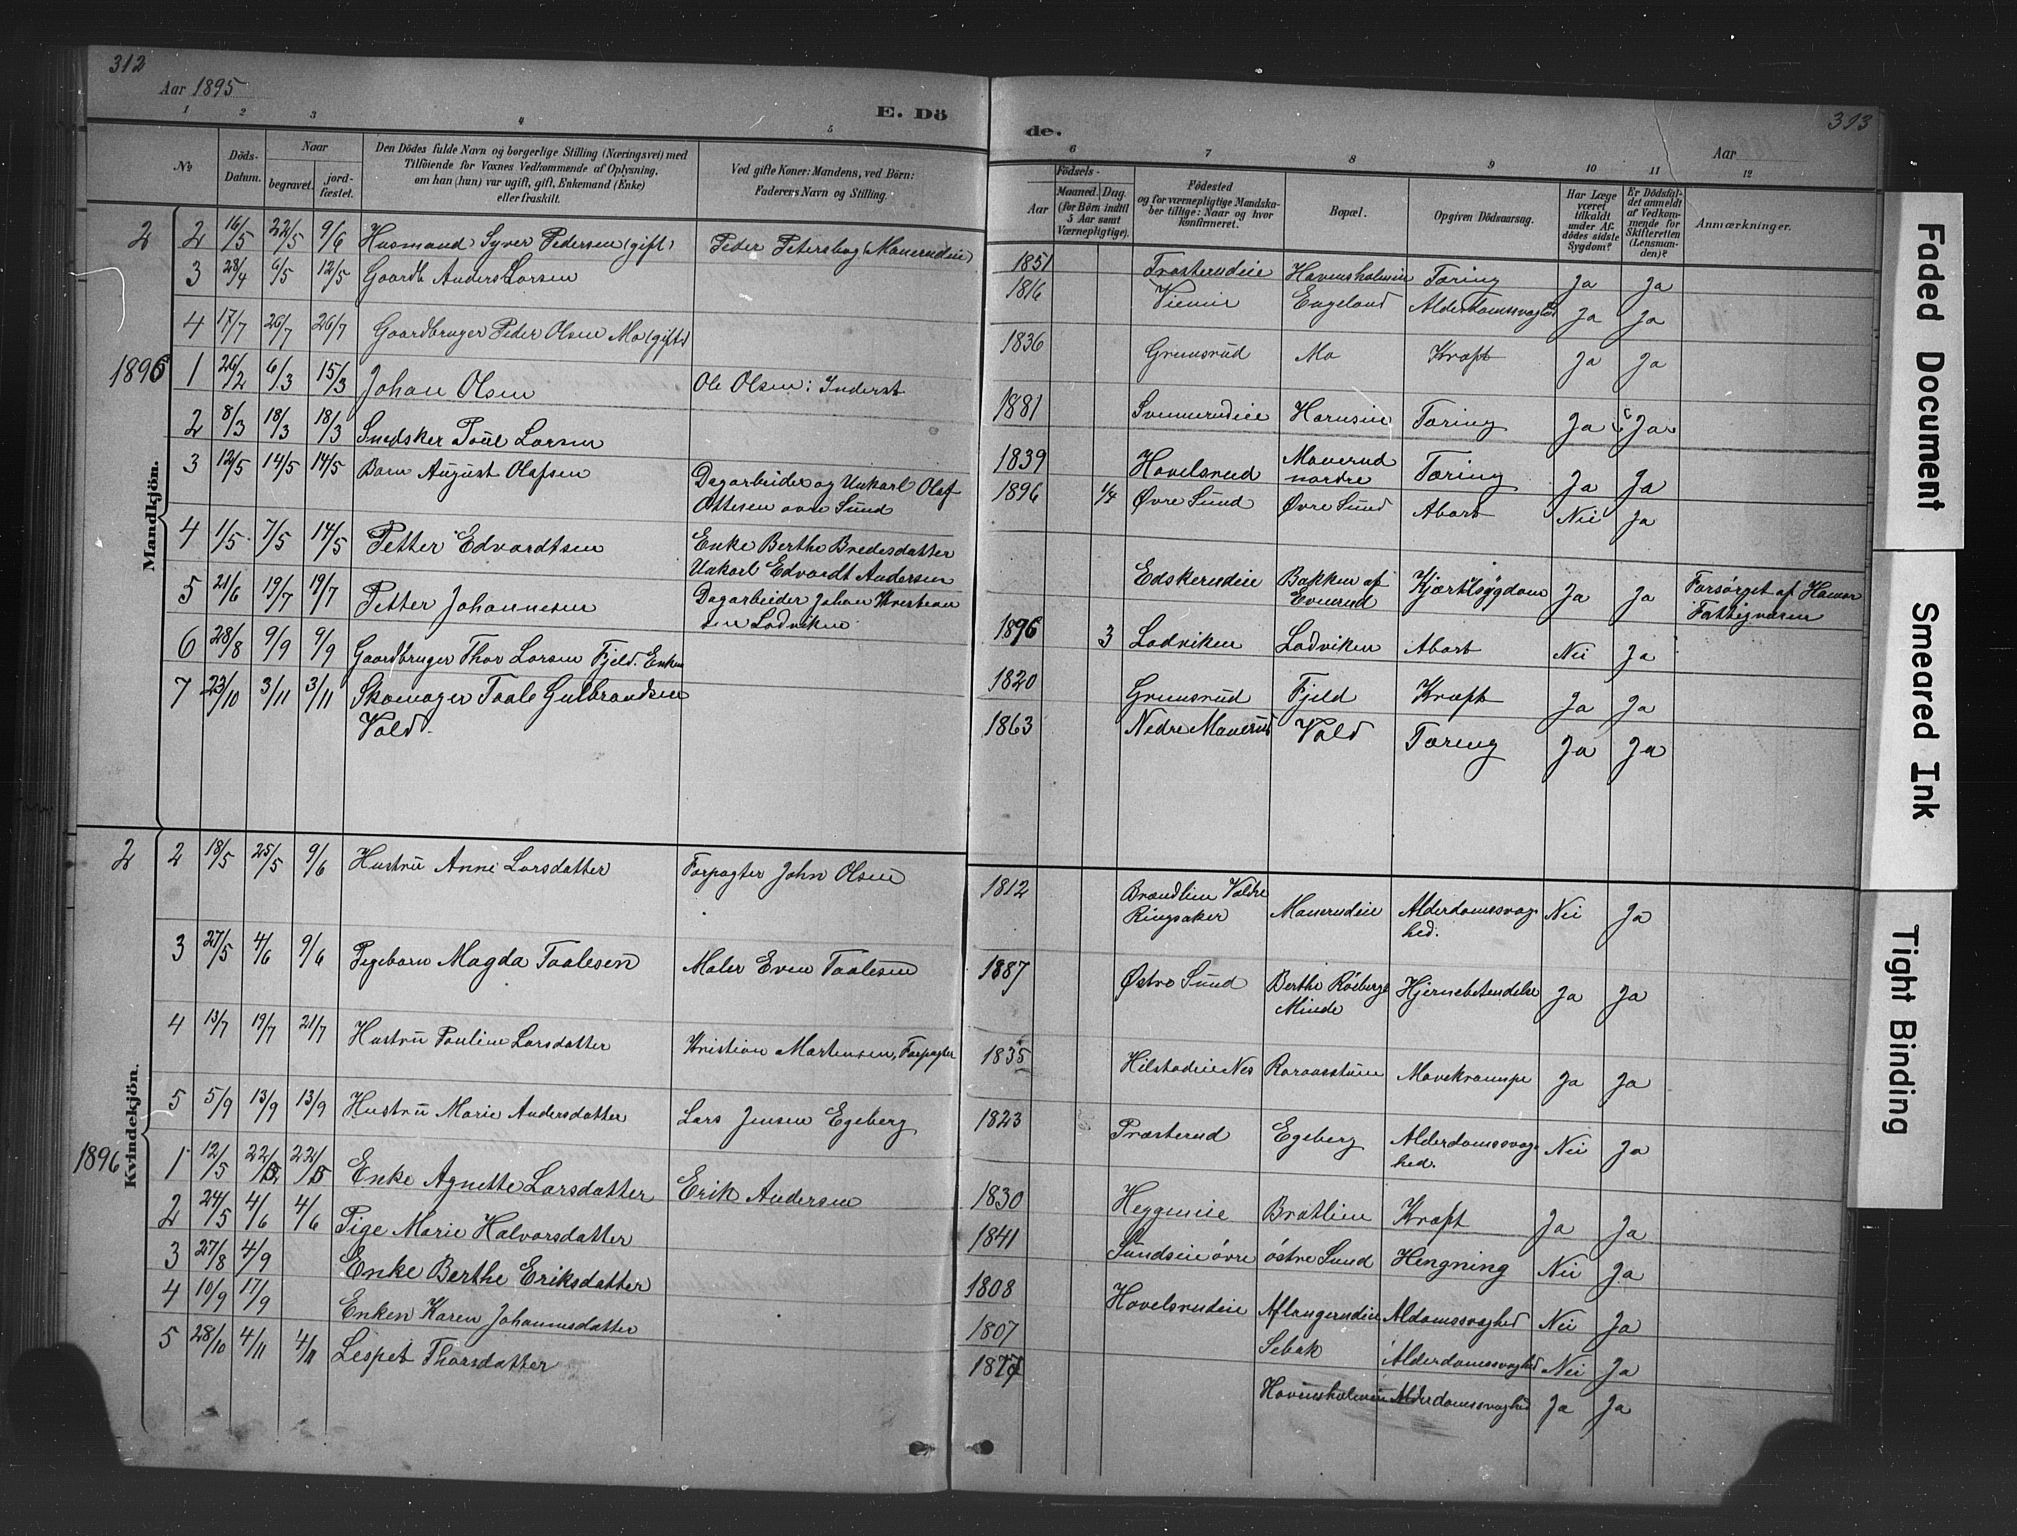 312
Aar 1895
E. Dö
1 2 3 4 5
No
Döds-Datum.
Naar
begravet.
jord-fæstet.
Den Dödes fulde Navn og borgerlige Stilling (Næringsvei) med
Tilföiende for Voxnes Vedkommende af Oplysning,
om han (hun) var ugift, gift, Enkemand (Enke)
eller fraskilt.
Ved gifte Koner: Mandens, ved Börn:
Faderens Navn og Stilling.
Mandkjön.
2 2 16/5 22/5 9/6 Husmand Syver Pedersen (gift) Peder Petersbog (Manerudeie)
3 28/4 6/5 12/5 Gaardb Anders Larsen
4 17/7 26/7 26/7 Gaardbruger Peder Olsen Mo (gift)
1896 1 26/2 6/3 15/3 Johan Olsen Ole Olsen: Inderst
2 8/3 18/3 18/3 Snedsker Poul Larsen
3 12/5 14/5 14/5 Barn August Olafsen Dagarbeider og Unkarl Olaf
Ottesen øvre Sund
4 1/5 7/5 14/5 Petter Edvardtsen Enke Berthe Bredesdatter
Unkarl Edvardt Andersen
5 21/6 19/7 19/7 Petter Johannesen Dagarbeider Johan Kristian
sen Lodviken
6 28/8 9/9 9/9 Gaardbruger Thor Larsen Fjeld. Enkem
7 23/10 3/11 3/11 Skomager Taale Gulbrandsen
Vold
Kvindekjön.
2 2 18/5 25/5 9/6 Hustru Anne Larsdatter Forpagter John Olsen
3 27/5 4/6 9/6 Pigebarn Magda Taalesen Maler Even Taalesen
4 13/7 19/7 21/7 Hustru Pauline Larsdatter Kristian Martensen, Forpagter
5 5/9 13/9 13/9 Hustru Marie Andersdatter Lars Jensen Egeberg
1896 1 12/5 22/5 22/5 Enke Agnette Larsdatter Erik Andersen
2 24/5 4/6 4/6 Pige Marie Halvorsdatter
3 27/8 4/9 Enke Berthe Eriksdatter
4 10/9 17/9 Enken Karen Johannesdatter
5 28/10 4/11 4/11 Lespet Thorsdatter
313
de.
Aar
6 7 8 9 10 11 12
Födsels-
Aar
Maaned. Dag.
(for Börn indtil
5 Aar samt
Værnepligtige).
Födested
og for værnepligtige Mandska-
ber tillige: Naar og hvor
konfirmeret.
Bopæl.
Opgiven Dödsaarsag.
Har Læge
været
tilkaldt
under Af-
dödes sidste
Sygdom?
Er Dödsfal-
det anmeldt
af Vedkom-
mende for
Skifteretten
(Lensman-
den)?
Anmærkninger.
1851 Frosterudeie Havensholmen Tæring Ja Ja
1816 Viemie Engeland Alderdomssvaghed Ja Ja
1836 Grimsrud Mo Kræft Ja Ja
1881 Svennerudeie Hornseie Tæring Ja Ja
1839 Hovelsrud Manerud
nordre Tæring Ja Ja
1896 1/4 Øvre Sund Øvre Sund Abort Nei Ja
Edskerudeie Bakken af
Evenrud Hjærtesygdom Ja Ja Forsørget af Hamar
Fattigvæsen
1896 3 Lodviken Lodviken Abort Nei Ja
1820 Grimsrud Fjeld Kræft Ja Ja
1863 Nedre Manerud Vold Tæring Ja Ja
1812 Brændlien Valdre
Ringsaker Manerudeie Alderdomssvag-
hed. Nei Ja
1887 Østre Sund Berthe Röebergs
Minde Hjernebetendelse Ja Ja
1835 Hilstadeie Nes Roraasstuen Mavekrampe Ja Ja
1823 Præsterud Egeberg Alderdomssvag-
hed. Nei Ja
1830 Heggeneie Bratlien Kræft Ja Ja
1841 Sundseie øvre østre Sund Hengning Nei Ja
1808 Hovelsrudeie Aflangerudeie Aldomssvaghed Nei Ja
1807 Alderdomssvaghed Nei Ja
Havensholmen Alderdomssvaghed Ja Ja
Faded Document
Smeared Ink
Tight Binding